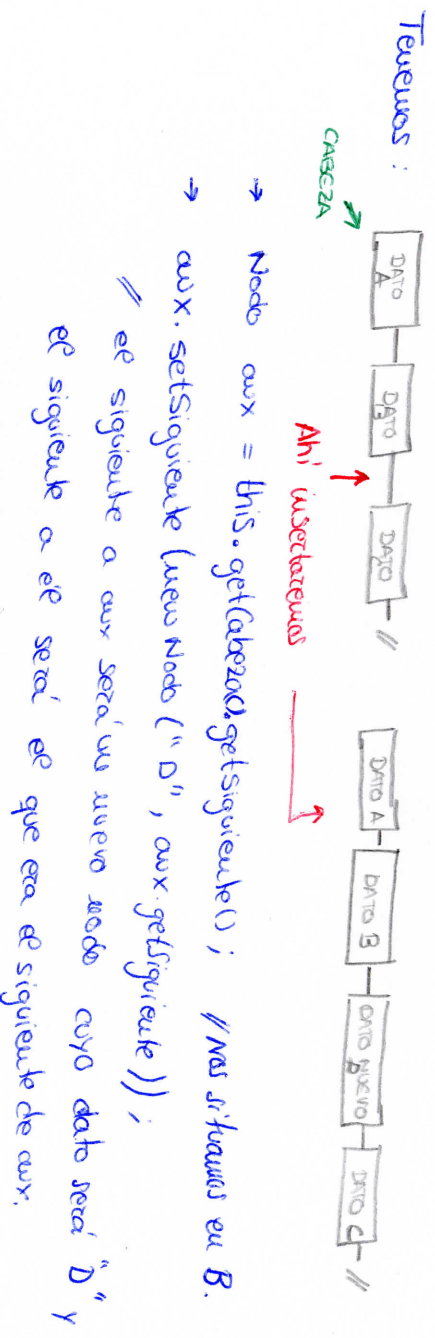 Tenemos :
DATO A
DATO B
DATO C
//
DATO A
DATO B
DATO NUEVO D
DATO C
//
CABEZA
Ahí insertaremos
→ Nodo aux = this.getCabeza().getSiguiente(); // Nos situamos en B.
→ aux.setSiguiente(new Nodo("D", aux.getSiguiente());
// el siguiente a aux será un nuevo nodo cuyo dato será "D" y
el siguiente a él será el que era el siguiente de aux.